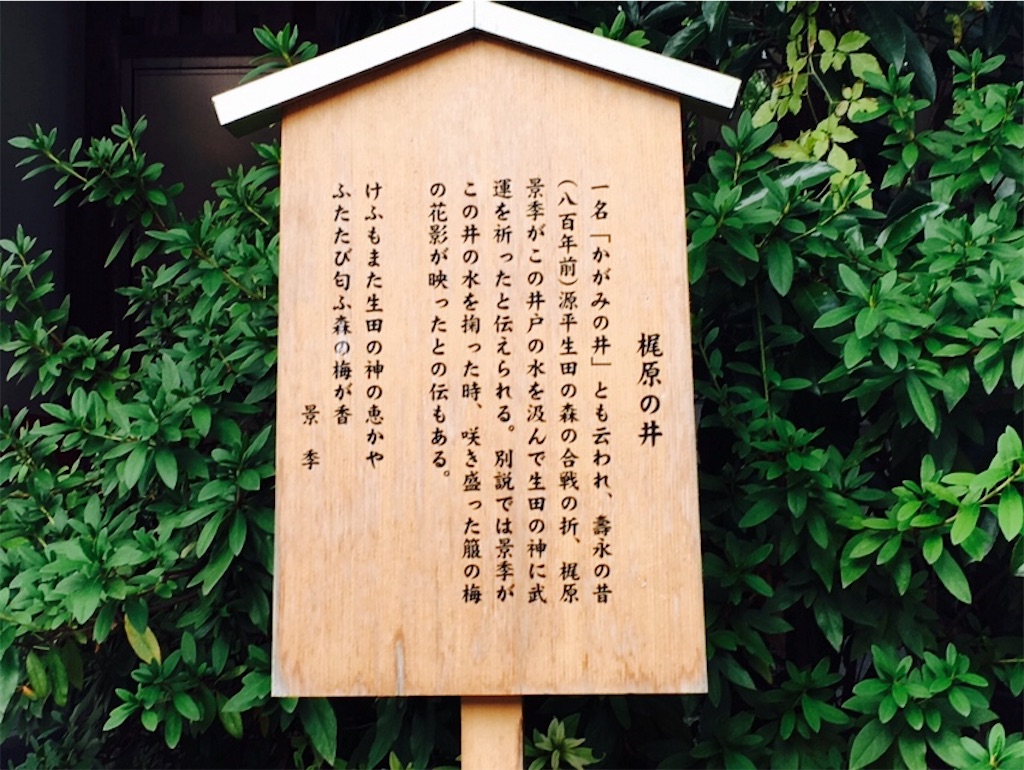 梶原の井
一名「かがみの井」とも云われ、壽永の昔
（八百年前）源平生田の森の合戦の折、梶原
景季がこの井戸の水を汲んで生田の神に武
運を祈ったと伝えられる。別説では景季が
この井の水を掬った時、咲き盛った箙の梅
の花影が映ったとの伝もある。
けふもまた生田の神の恵かや
ふたたび匂ふ森の梅が香
景季